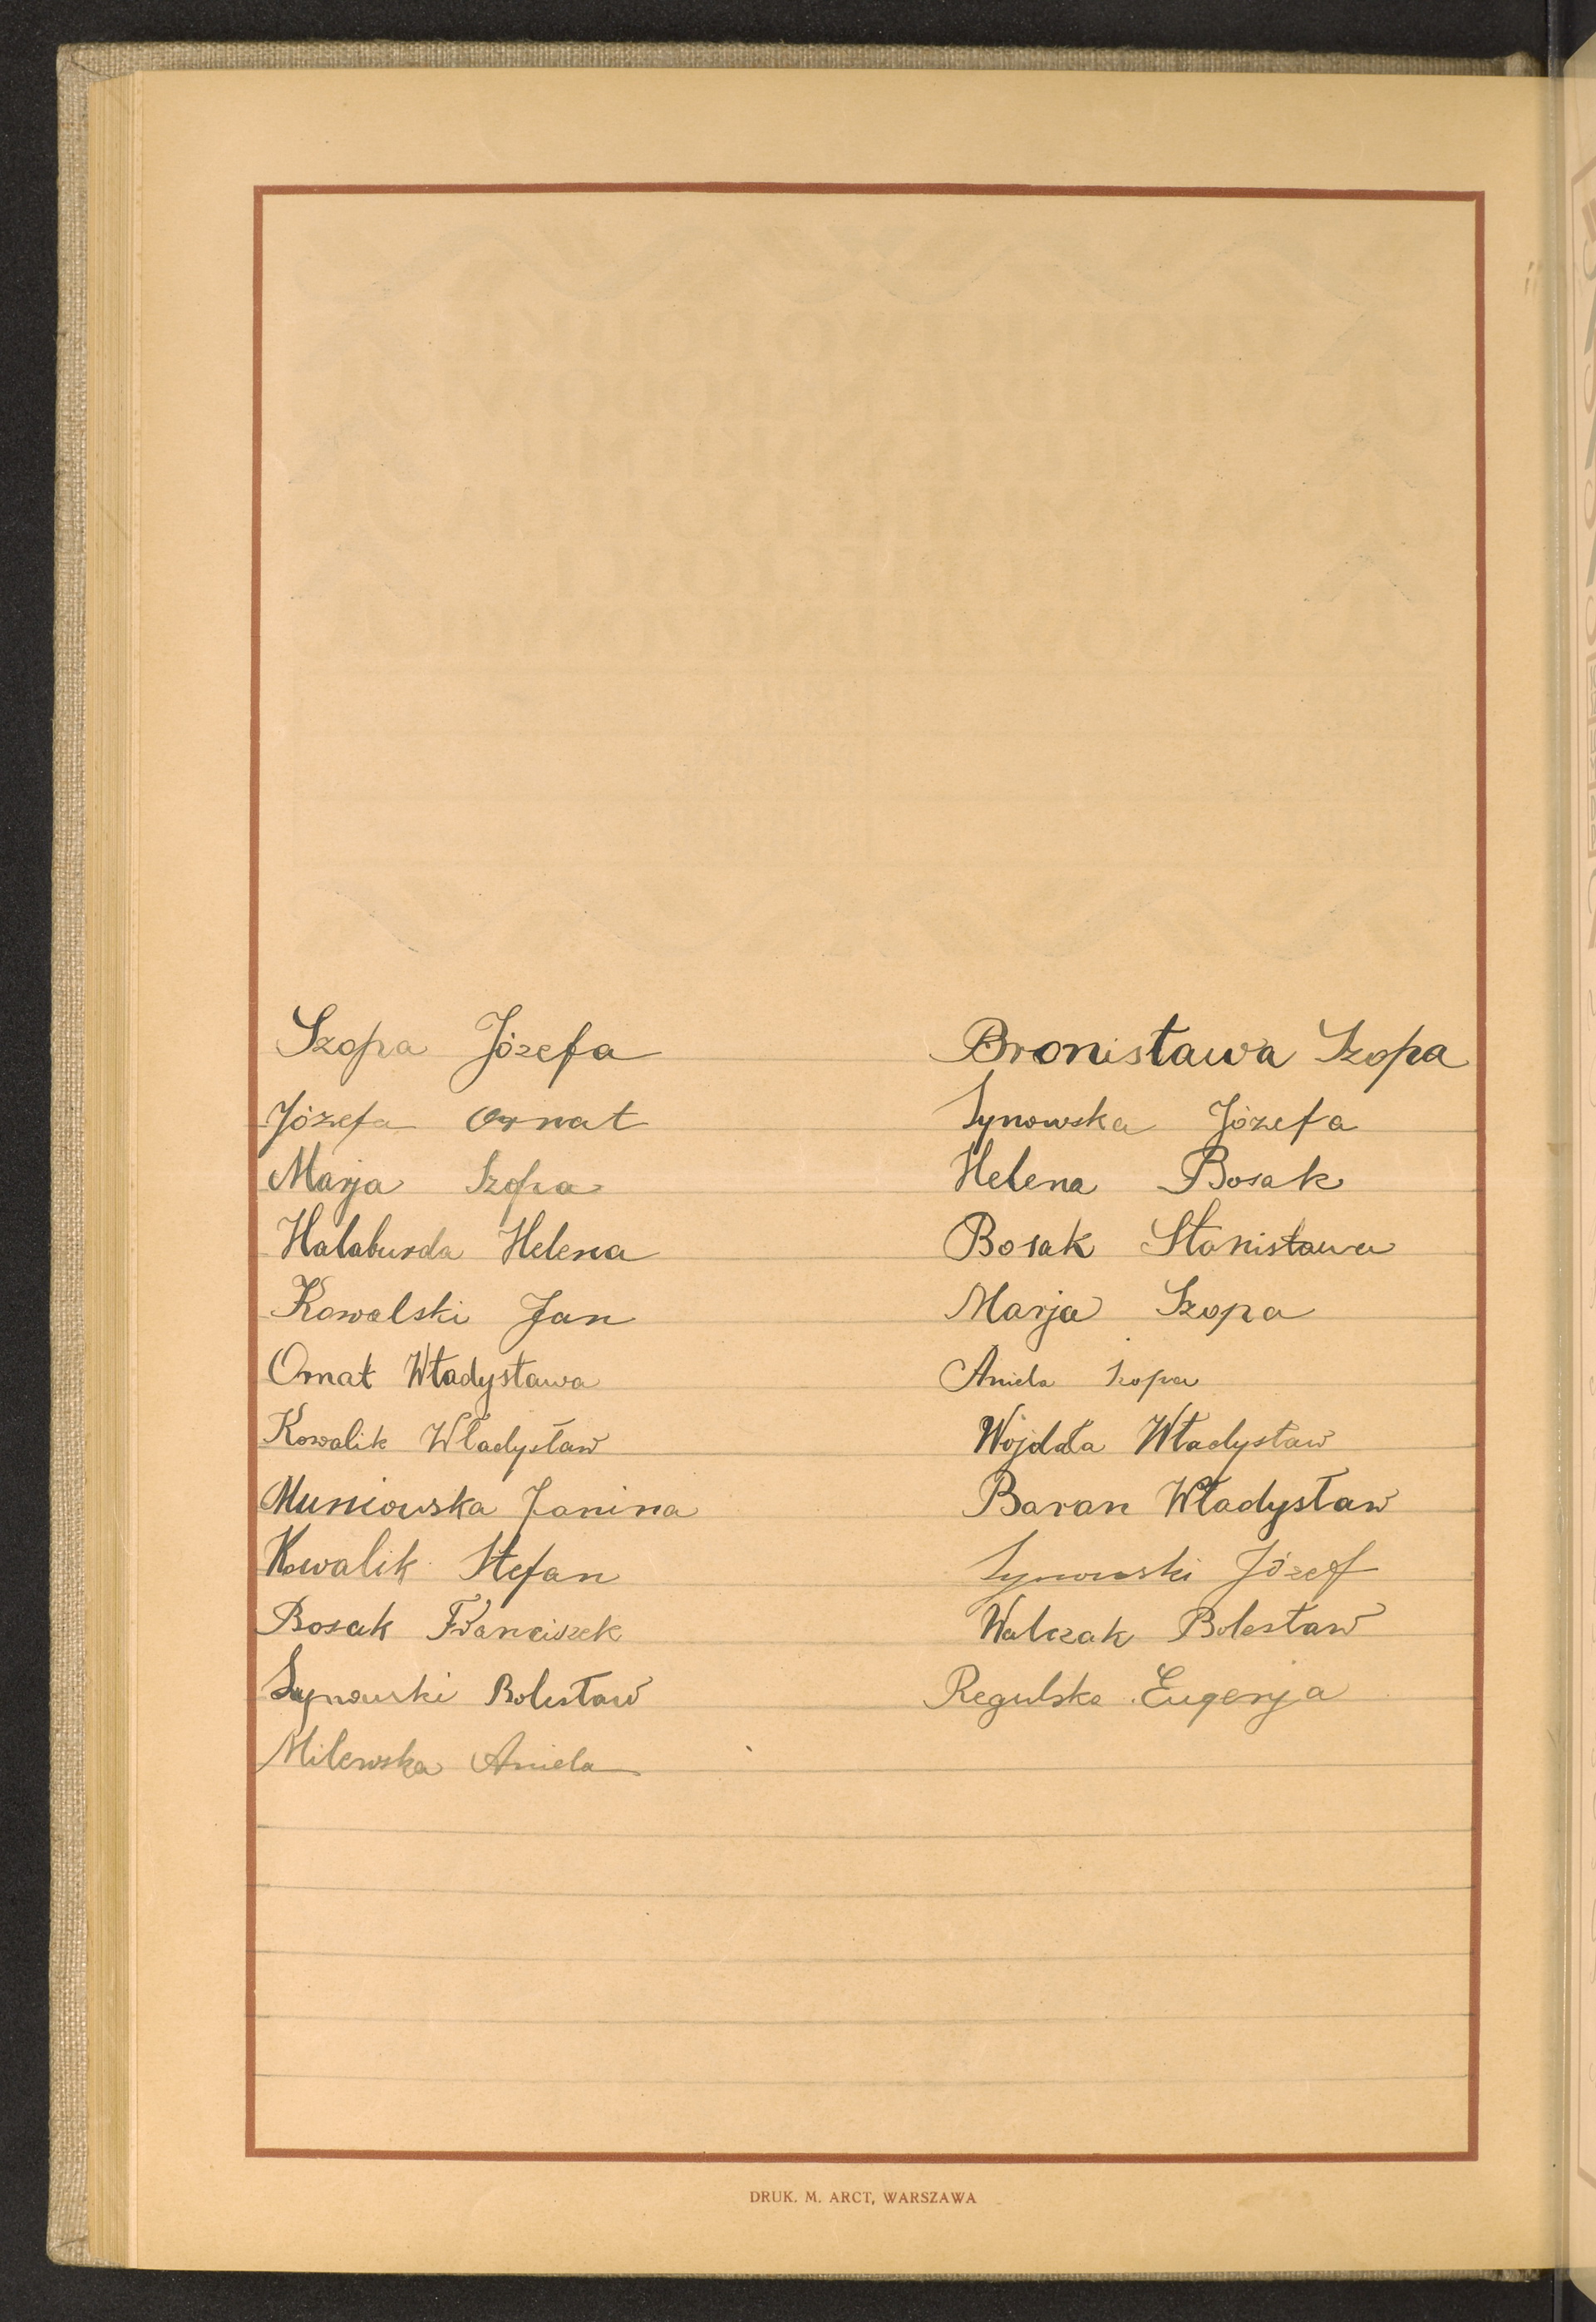 Szopa Józefa
Józefa Ornat
Marja Szopa
Halaburda Helena
Kowalski Jan
Ornat Władysława
Kowalik Władysław
Muniowska Janina
Kowalik Stefan
Bosak Franciszek
Synowski Bolesław
Milewska Aniela
Bronisława Szopa
Synowska Józefa
Helena Bosak
Bosak Stanisława
Marja Szopa
Aniela Szopa
Wojdała Władysław
Baran Władysław
Synowski Józef
Walczak Bolesław
Regulska Eugenja
DRUK. M. ARCT, WARSZAWA